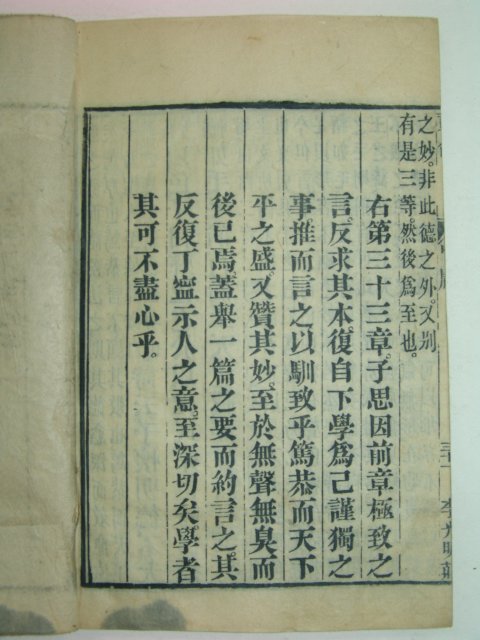 之妙。非此德之外。又別
有是三等。然後爲至也。
右第三十三章。子思因前章極致之
言。反求其本。復自下學爲己謹獨之
事。推而言之。以馴致乎篤恭而天下
平之盛。又贊其妙。至於無聲無臭而
後已焉。蓋舉一篇之要而約言之。其
反復丁寧示人之意。至深切矣。學者
其可不盡心乎。